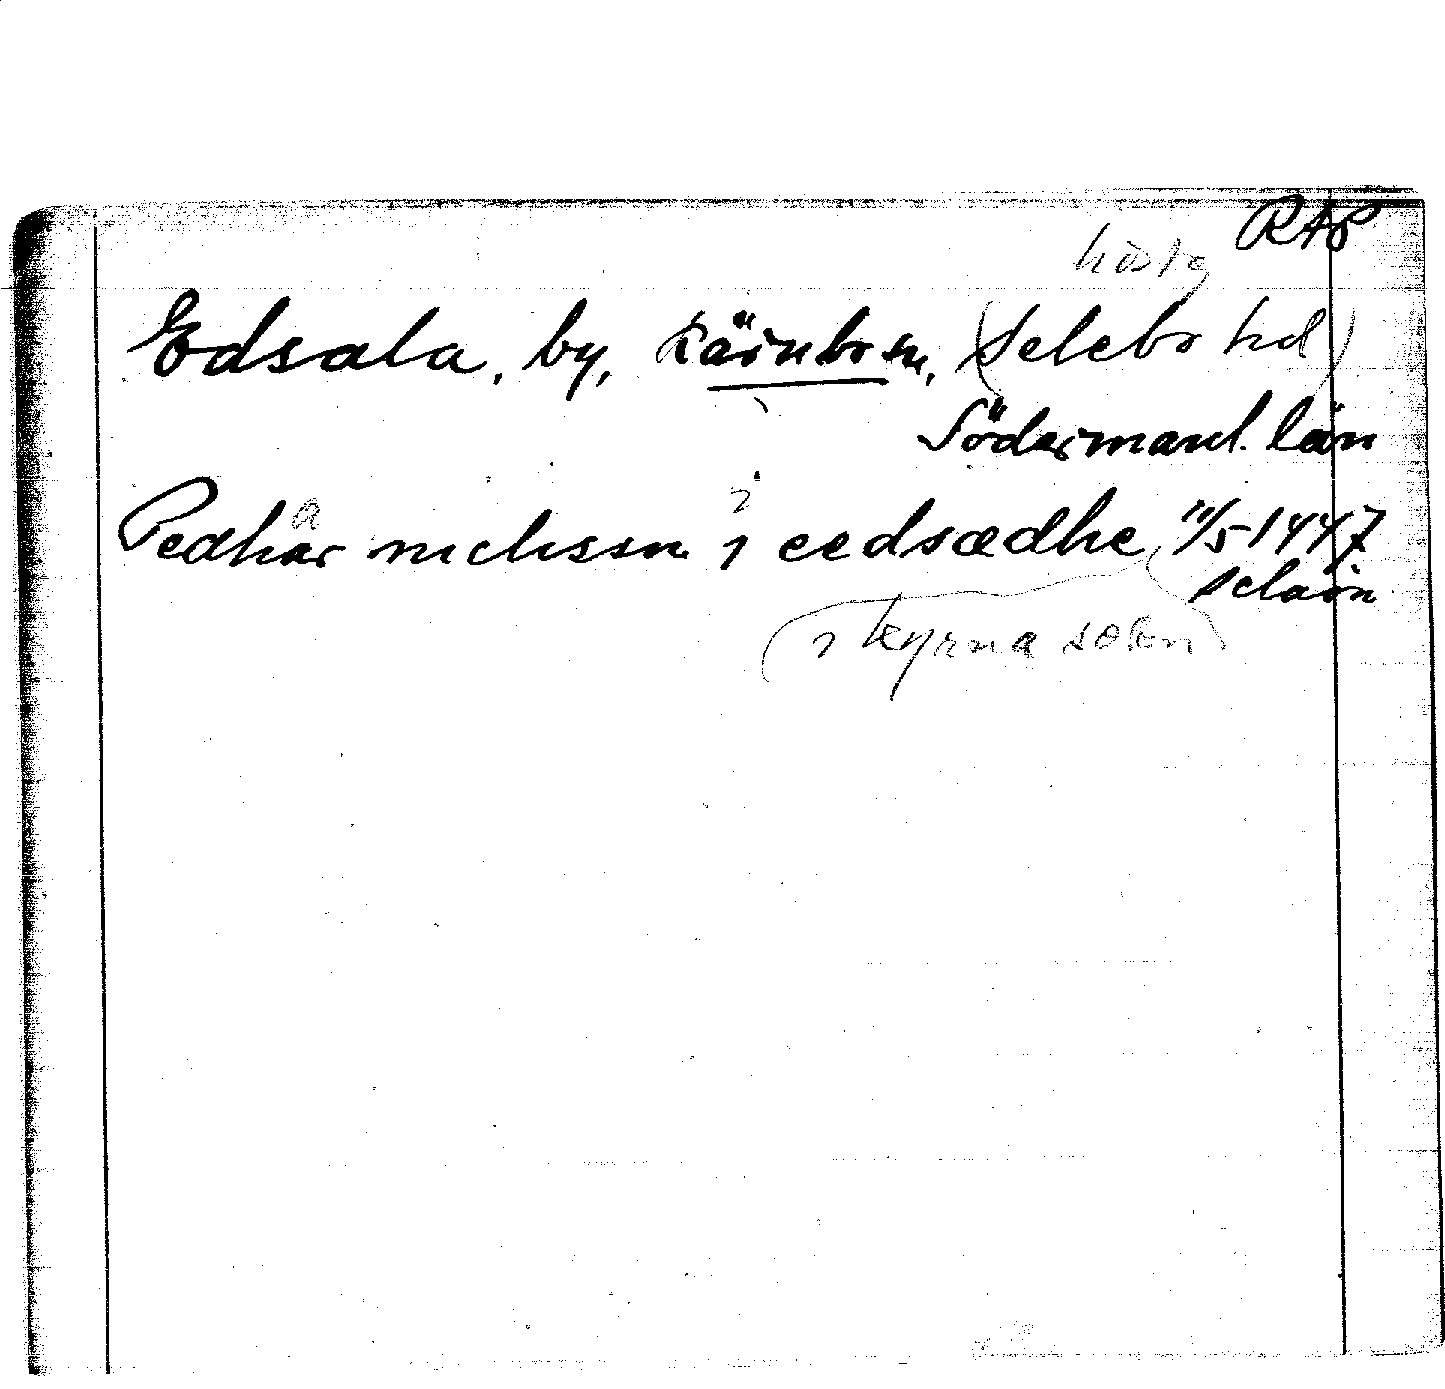 RAP
Edsala, by, Kärnbo sn, (Selebo hd)
Södermanl. län
a i
Pedhar niclissn i eedsædhe 11/5 1447
Selaön
i kyrna sokn